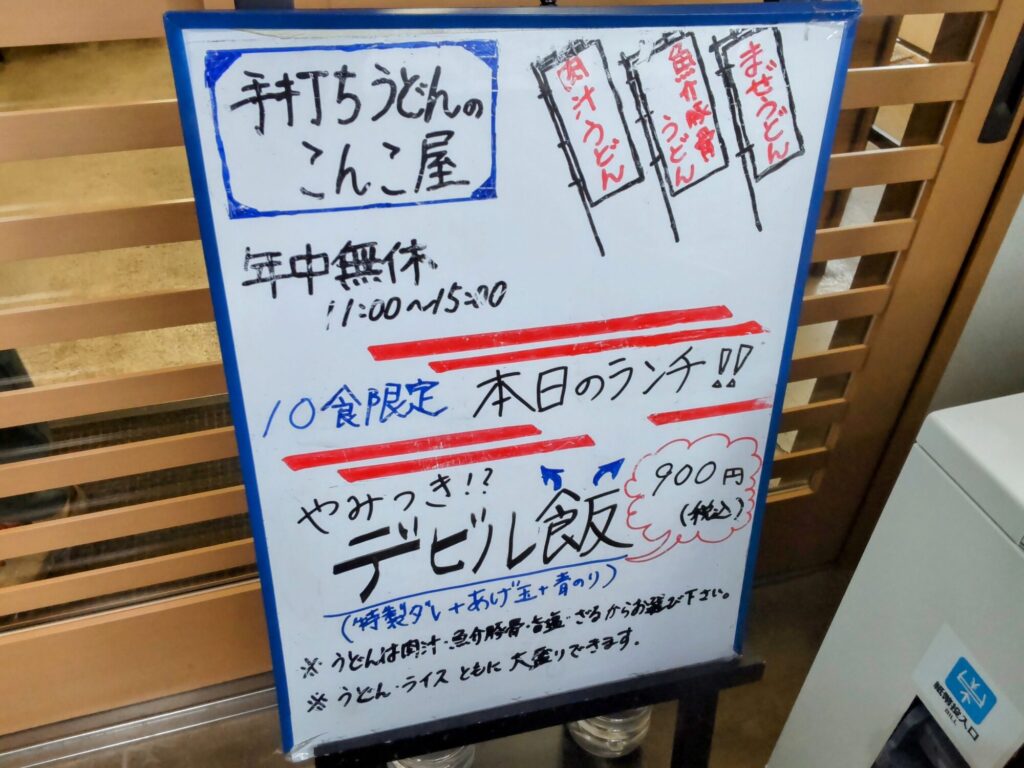 手打ちうどんの
こんこ屋
肉汁うどん
魚介豚骨
うどん
まぜうどん
年中無休
11:00〜15:00
10食限定 本日のランチ!!
やみつき!?
デビル飯
900円
(税込)
(特製ダレ+あげ玉+青のり)
※うどんは肉汁・魚介豚骨・旨塩・ざるからお選び下さい。
※うどん・ライスともに大盛りできます.
紙幣投入口
BILL